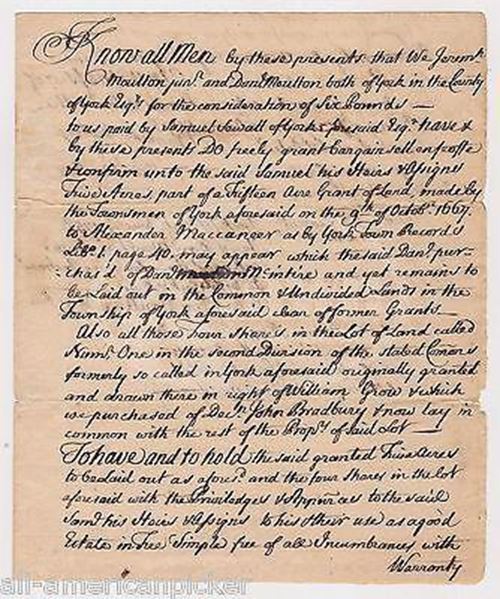 Know all Men by these presents that We Jeremh
Moulton junr. and Danl Moulton both of York in the County
of York Esqrs for the consideration of Six Pounds —
to us paid by Samuel Sewall of York aforesaid Esqr have &
by these presents DO freely grant bargain sell enfeoffe
& confirm unto the said Samuel his Heirs & Assigns
Five Acres, part of a Fifteen Acre Grant of Land, made by
the Townsmen of York aforesaid on the 9th of Octobr. 1667.
to Alexander Maccaneer as by York Town Records
Libo. 1. page 40. may appear which the said Danl. pur-
chas'd of Danl. McIntire and yet remains to
be Laid out in the Common & Undivided Lands in the
Township of York aforesaid clear of former Grants —
Also all those Four Shares in the Lot of Land called
Numr. One in the second Division of the stated Comons
formerly so called in York aforesaid originally granted
and drawn there in right of William Grow & which
we purchased of Deacn. John Bradbury & now lay in
common with the rest of the Propry of said Lot —
To have and to hold the said granted Five Acres
to be laid out as aforesd. and the four shares in the lot
aforesaid with the Priviledges & Appurces to the said
Saml his Heirs & Assigns to his & their use as a good
Estate in Fee Simple free of all Incumbrances with
Warranty
all-americanpicker